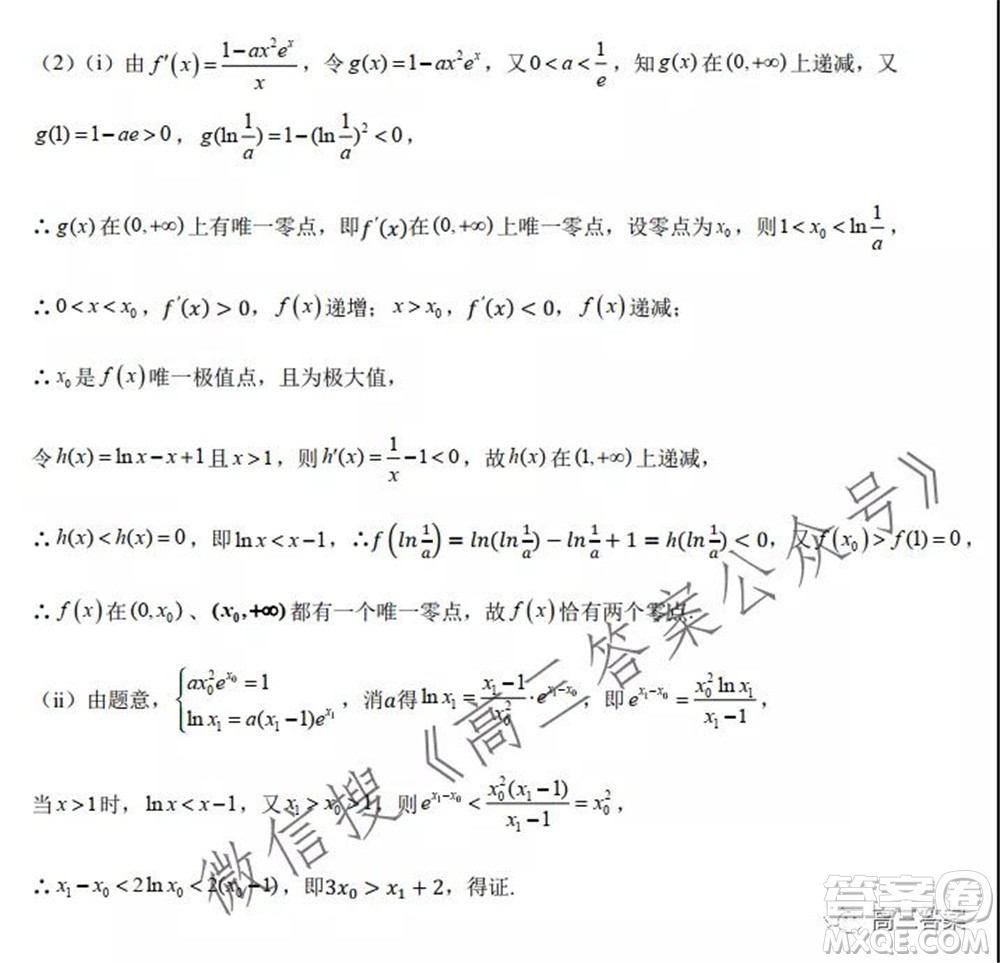 （2）（i）由 f′(x)=(1−ax²eˣ)/x，令 g(x)=1−ax²eˣ，又 0<a<1/e，知 g(x) 在 (0,+∞) 上递减，又
g(1)=1−ae>0，g(ln 1/a)=1−(ln 1/a)²<0，
∴ g(x) 在 (0,+∞) 上有唯一零点，即 f′(x) 在 (0,+∞) 上唯一零点，设零点为 x₀，则 1<x₀<ln 1/a，
∴ 0<x<x₀，f′(x)>0，f(x) 递增；x>x₀，f′(x)<0，f(x) 递减；
∴ x₀ 是 f(x) 唯一极值点，且为极大值，
令 h(x)=ln x−x+1 且 x>1，则 h′(x)=1/x−1<0，故 h(x) 在 (1,+∞) 上递减，
∴ h(x)<h(x)=0，即 ln x<x−1，∴f(ln 1/a)=ln(ln 1/a)−ln 1/a+1=h(ln 1/a)<0，又 f(x₀)>f(1)=0，
∴ f(x) 在 (0,x₀)、(x₀,+∞) 都有一个唯一零点，故 f(x) 恰有两个零点.
（ii）由题意，{ax₀²e^(x₀)=1，ln x₁=a(x₁−1)e^(x₁)，消a得 ln x₁=(x₁−1)/x₀²·e^(x₁−x₀)，即 e^(x₁−x₀)=x₀²ln x₁/(x₁−1)，
当 x>1 时，ln x<x−1，又 x₁>x₀>1，则 e^(x₁−x₀)<x₀²(x₁−1)/(x₁−1)=x₀²，
∴ x₁−x₀<2ln x₀<2(x₀−1)，即3x₀>x₁+2，得证.
微信搜《高三答案公众号》
高三答案
答案圈
MXQE.COM